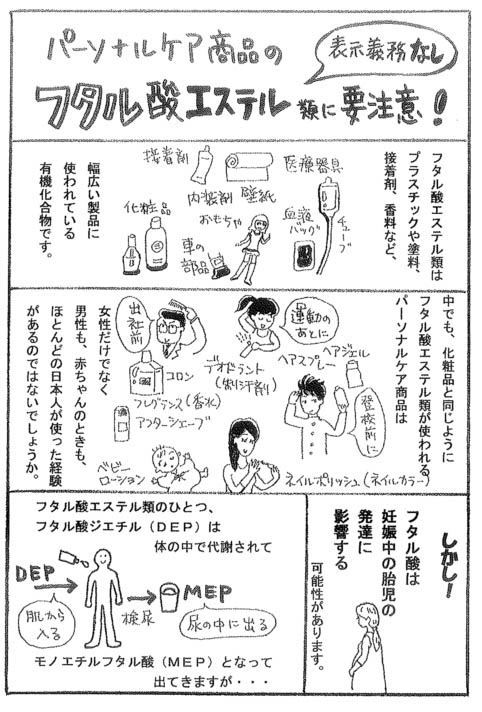 パーソナルケア商品の
表示義務なし
フタル酸エステル類に要注意!
フタル酸エステル類は
プラスチックや塗料、
接着剤、香料など、
接着剤
医療器具
内装剤
壁紙
化粧品
おもちゃ
血液
バッグ
チューブ
車の
部品
幅広い製品に
使われている
有機化合物です。
中でも、化粧品と同じように
フタル酸エステル類が使われる
パーソナルケア商品は
運動の
あとに
出社前
ヘアジェル
ヘアスプレー
登校前に
デオドラント
(制汗剤)
コロン
フレグランス(香水)
アフターシェーブ
ベビー
ローション
ネイルポリッシュ(ネイルカラー)
女性だけでなく
男性も、赤ちゃんのときも、
ほとんどの日本人が使った経験
があるのではないでしょうか。
しかし!
フタル酸は
妊娠中の胎児の
発達に
影響する
可能性があります。
フタル酸エステル類のひとつ、
フタル酸ジエチル(DEP)は
体の中で代謝されて
DEP
肌から
入る
検尿
MEP
尿の中に出る
モノエチルフタル酸(MEP)となって
出てきますが・・・